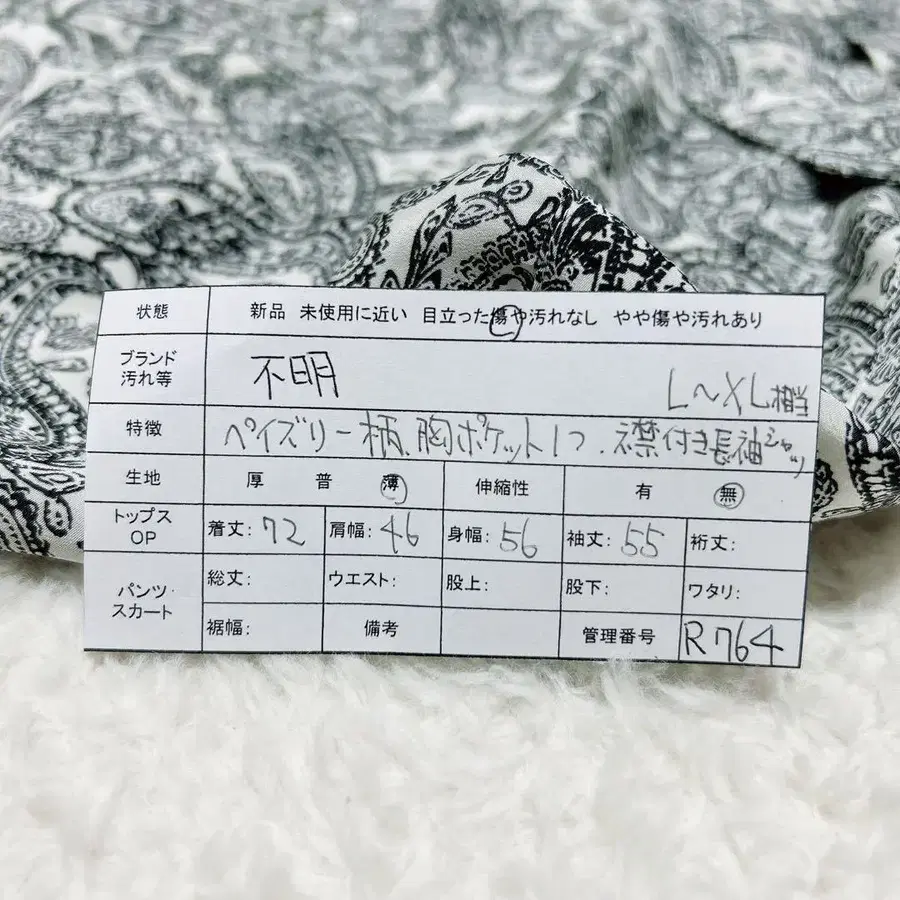 状態 新品 未使用に近い 目立った傷や汚れなし やや傷や汚れあり
ブランド
汚れ等 不明 L〜XL相当
特徴 ペイズリー柄、胸ポケット1つ、襟付き長袖シャツ
生地 厚 普 薄 伸縮性 有 無
トップス
OP 着丈:72 肩幅:46 身幅:56 袖丈:55 裄丈:
パンツ
スカート 総丈: ウエスト: 股上: 股下: ワタリ:
裾幅: 備考 管理番号 R764